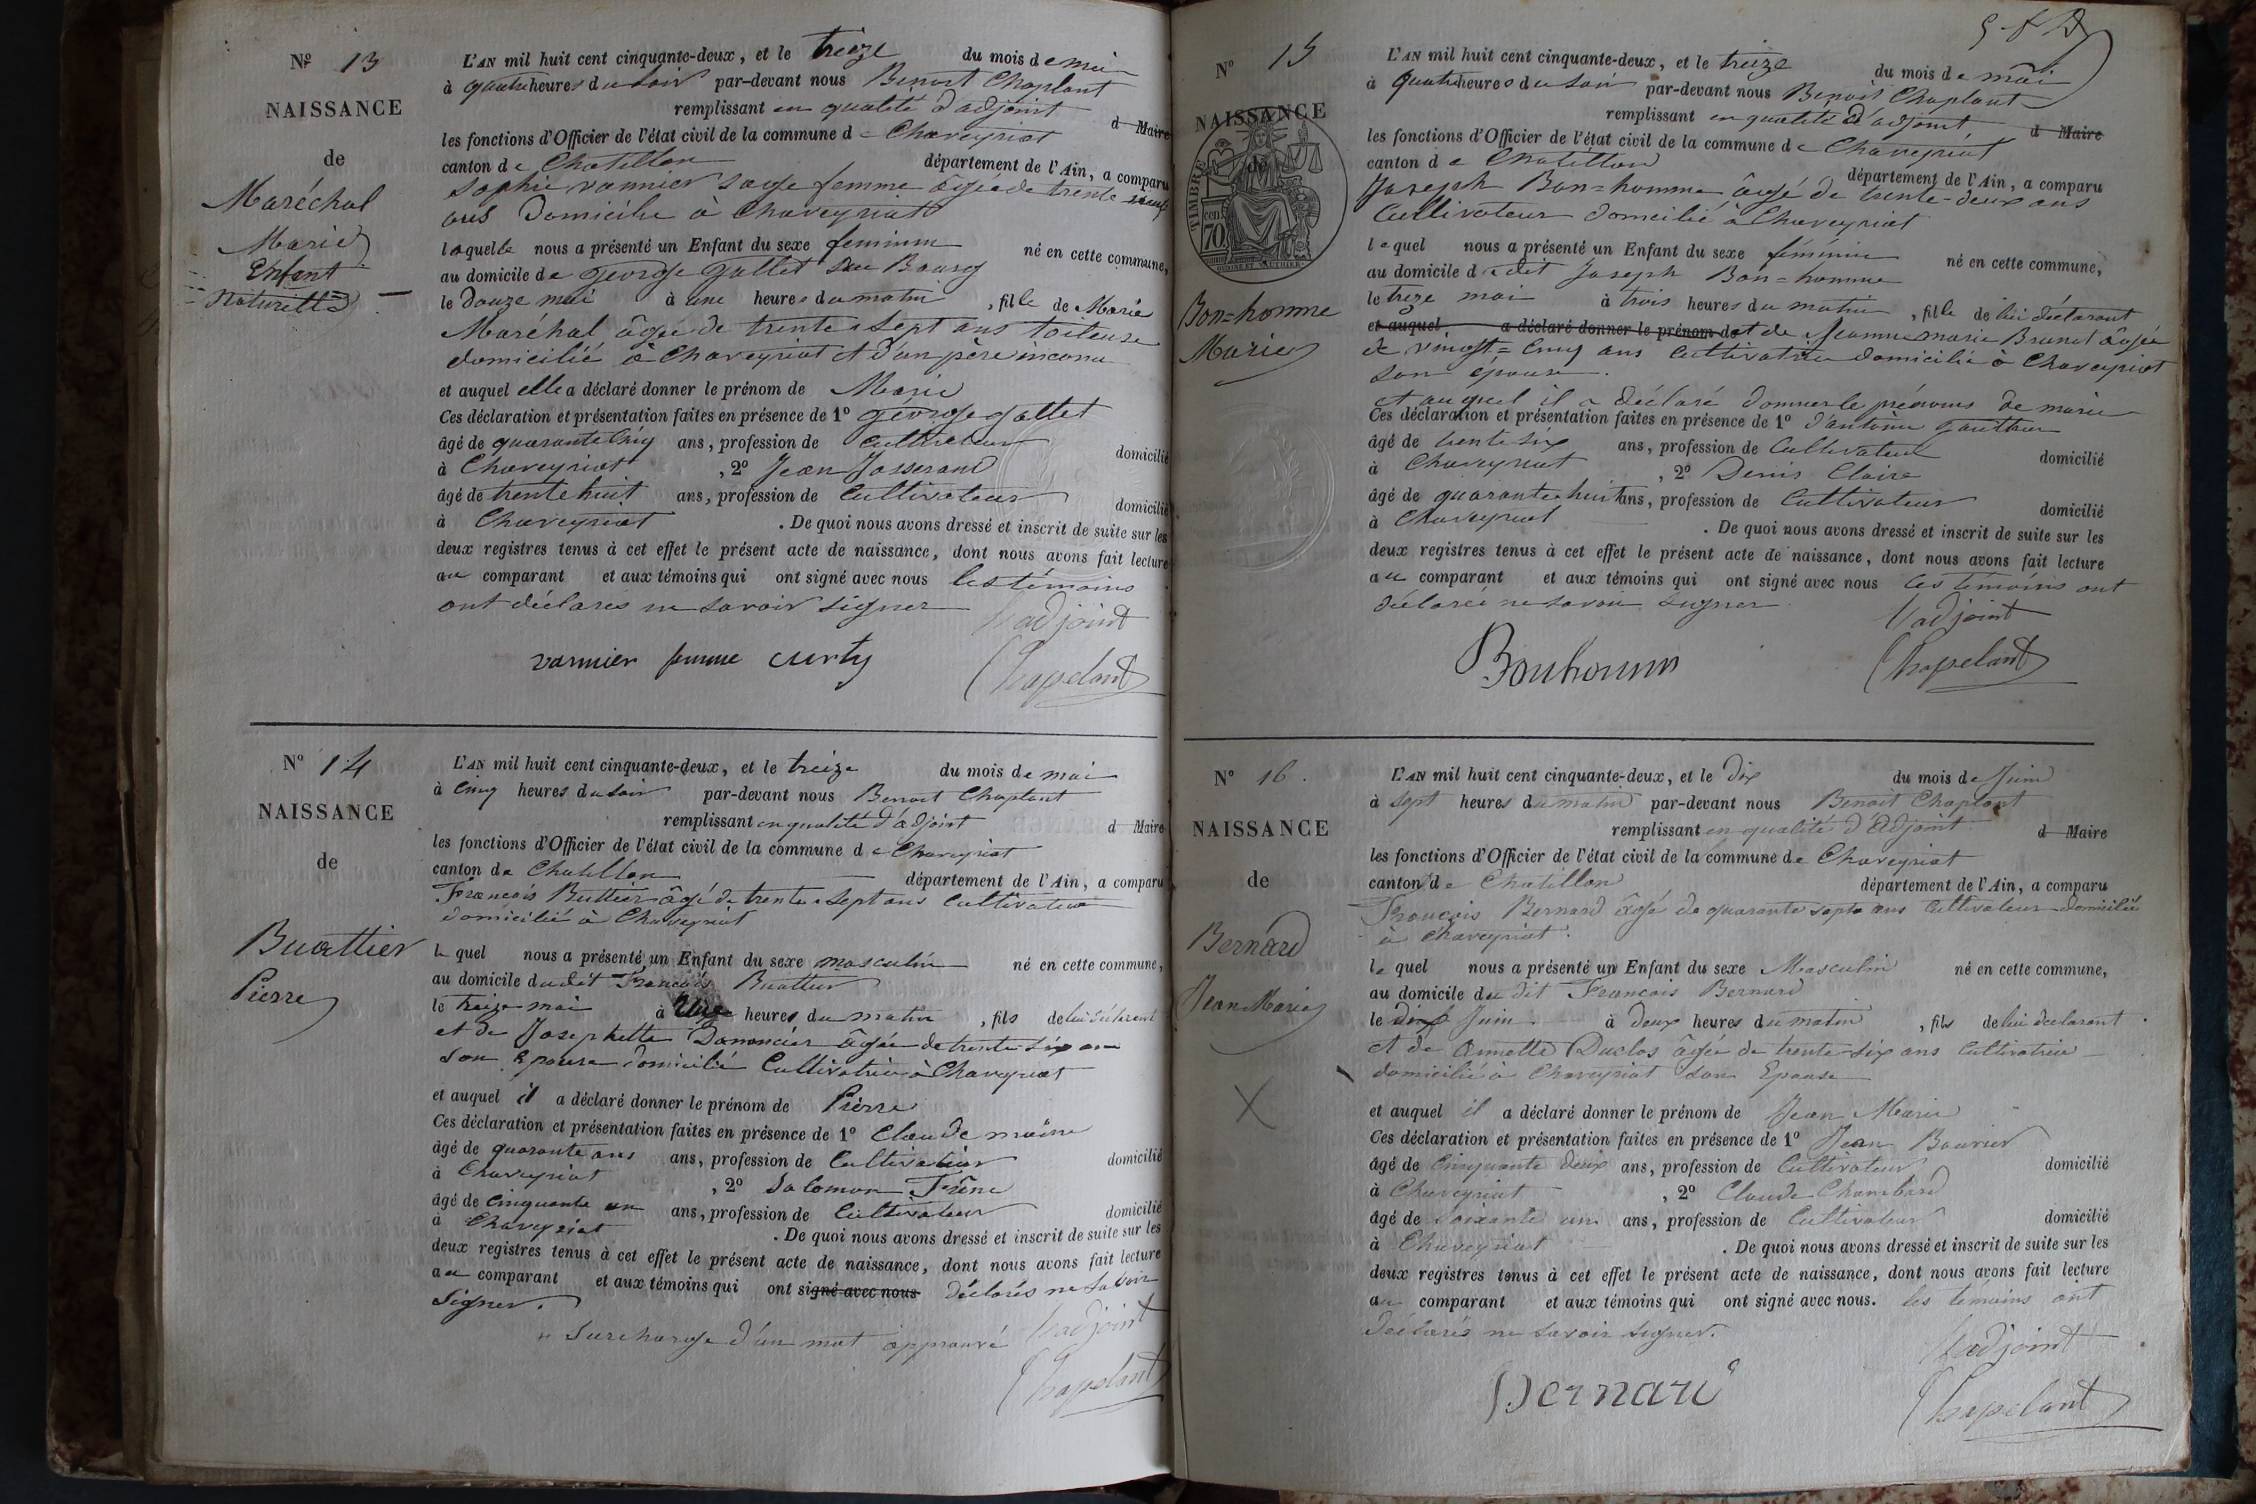 Nº 13
NAISSANCE
de
Maréchal
Marie
Enfant
Naturelle
L'AN mil huit cent cinquante-deux, et le treize du mois de mai
à quatre heures du soir par-devant nous Benoit Chaplant
remplissant en qualité d'adjoint d Maire
les fonctions d'Officier de l'état civil de la commune de Chaveyriat
canton de Chatillon département de l'Ain, a comparu
Sophie vannier sage femme âgée de trente neuf
ans Domicilié à Chaveyriat
laquelle nous a présenté un Enfant du sexe feminin né en cette commune,
au domicile de George Gallet au Bourg
le douze mai à une heures du matin, fille de Marie
Maréchal âgée de trente-sept ans toiteuse
domicilié à Chaveyriat et d'un père inconnu
et auquel elle a déclaré donner le prénom de Marie
Ces déclaration et présentation faites en présence de 1º géorge gallet
âgé de quarante cinq ans, profession de Cultivateur domicilié
à Chaveyriat, 2º Jean Josserand
âgé de trente huit ans, profession de Cultivateur domicilié
à Chaveyriat. De quoi nous avons dressé et inscrit de suite sur les
deux registres tenus à cet effet le présent acte de naissance, dont nous avons fait lecture
au comparant et aux témoins qui ont signé avec nous les témoins
ont déclarés ne savoir signer
L'adjoint
vannier femme curty
Chapelant
Nº 14
NAISSANCE
de
Buattier
Pierre
L'AN mil huit cent cinquante-deux, et le treize du mois de mai
à Cinq heures du soir par-devant nous Benoit Chaplant
remplissant en qualité d'adjoint d Maire
les fonctions d'Officier de l'état civil de la commune de Chaveyriat
canton de Chatillon département de l'Ain, a comparu
François Buttier âgé de trente-sept ans Cultivateur
domicilié à Chaveyriat
le quel nous a présenté un Enfant du sexe masculin né en cette commune,
au domicile dudit François Buattier
le treize mai à Une heures du matin, fils de lui déclarant
et de Josephette Donnancier âgée de trente-six ans
son Epouse domicilié Cultivatrice à Chaveyriat
et auquel il a déclaré donner le prénom de Pierre
Ces déclaration et présentation faites en présence de 1º Claude moine
âgé de quarante ans ans, profession de Cultivateur domicilié
à Chaveyriat, 2º Salomon Frêne
âgé de Cinquante un ans, profession de Cultivateur domicilié
à Chaveyriat. De quoi nous avons dressé et inscrit de suite sur les
deux registres tenus à cet effet le présent acte de naissance, dont nous avons fait lecture
au comparant et aux témoins qui ont signé avec nous déclarés ne savoir
Signer.
Surcharge d'un mot approuvé L'adjoint
Chapelant
Nº 15
NAISSANCE
de
TIMBRE
70 cen
Bon=homme
Marie
L'AN mil huit cent cinquante-deux, et le treize du mois de mai
à quatre heures du soir par-devant nous Benoit Chaplant
remplissant en qualité d'adjoint d Maire
les fonctions d'Officier de l'état civil de la commune de Chaveyriat
canton de Chatillon département de l'Ain, a comparu
Joseph Bon=homme âgé de trente-deux ans
Cultivateur domicilié à Chaveyriat
lequel nous a présenté un Enfant du sexe féminin né en cette commune,
au domicile dudit Joseph Bon=homme
le treze mai à trois heures du matin, fille de lui déclarant
et auquel a déclaré donner le prénom de et de Jeanne marie Brunet âgée
de vingt=Cinq ans Cultivatrice domicilié à Chaveyriat
son épouse.
et auquel il a déclaré donner le prénoms de marie
Ces déclaration et présentation faites en présence de 1º d'antoine
âgé de trente six ans, profession de Cultivateur domicilié
à Chaveyriat, 2º Denis Claire
âgé de quarante-huit ans, profession de Cultivateur domicilié
à Chaveyriat. De quoi nous avons dressé et inscrit de suite sur les
deux registres tenus à cet effet le présent acte de naissance, dont nous avons fait lecture
au comparant et aux témoins qui ont signé avec nous les témoins ont
déclaré ne savoir signer
L'adjoint
Bonhomm
Chapelant
Nº 16.
NAISSANCE
de
Bernard
Jean Marie
L'AN mil huit cent cinquante-deux, et le Dix du mois de Juin
à sept heures du matin par-devant nous Benoit Chaplant
remplissant en qualité d'Adjoint d Maire
les fonctions d'Officier de l'état civil de la commune de Chaveyriat
canton de Chatillon département de l'Ain, a comparu
François Bernard âgé de quarante sept ans Cultivateur domicilié
à Chaveyriat.
le quel nous a présenté un Enfant du sexe Masculin né en cette commune,
au domicile du dit François Bernard
le dix Juin à deux heures du matin, fils de lui declarant
et de Annette Duclos âgée de trente-six ans Cultivatrice
domicilié à Chaveyriat son Epouse
et auquel il a déclaré donner le prénom de Jean Marie
Ces déclaration et présentation faites en présence de 1º Jean Bouvier
âgé de Cinquante deux ans, profession de Cultivateur domicilié
à Chaveyriat, 2º Claude Chambard
âgé de soixante un ans, profession de Cultivateur domicilié
à Chaveyriat. De quoi nous avons dressé et inscrit de suite sur les
deux registres tenus à cet effet le présent acte de naissance, dont nous avons fait lecture
au comparant et aux témoins qui ont signé avec nous. les temoins ont
déclarés ne savoir signer.
L'adjoint
Bernard
Chapelant